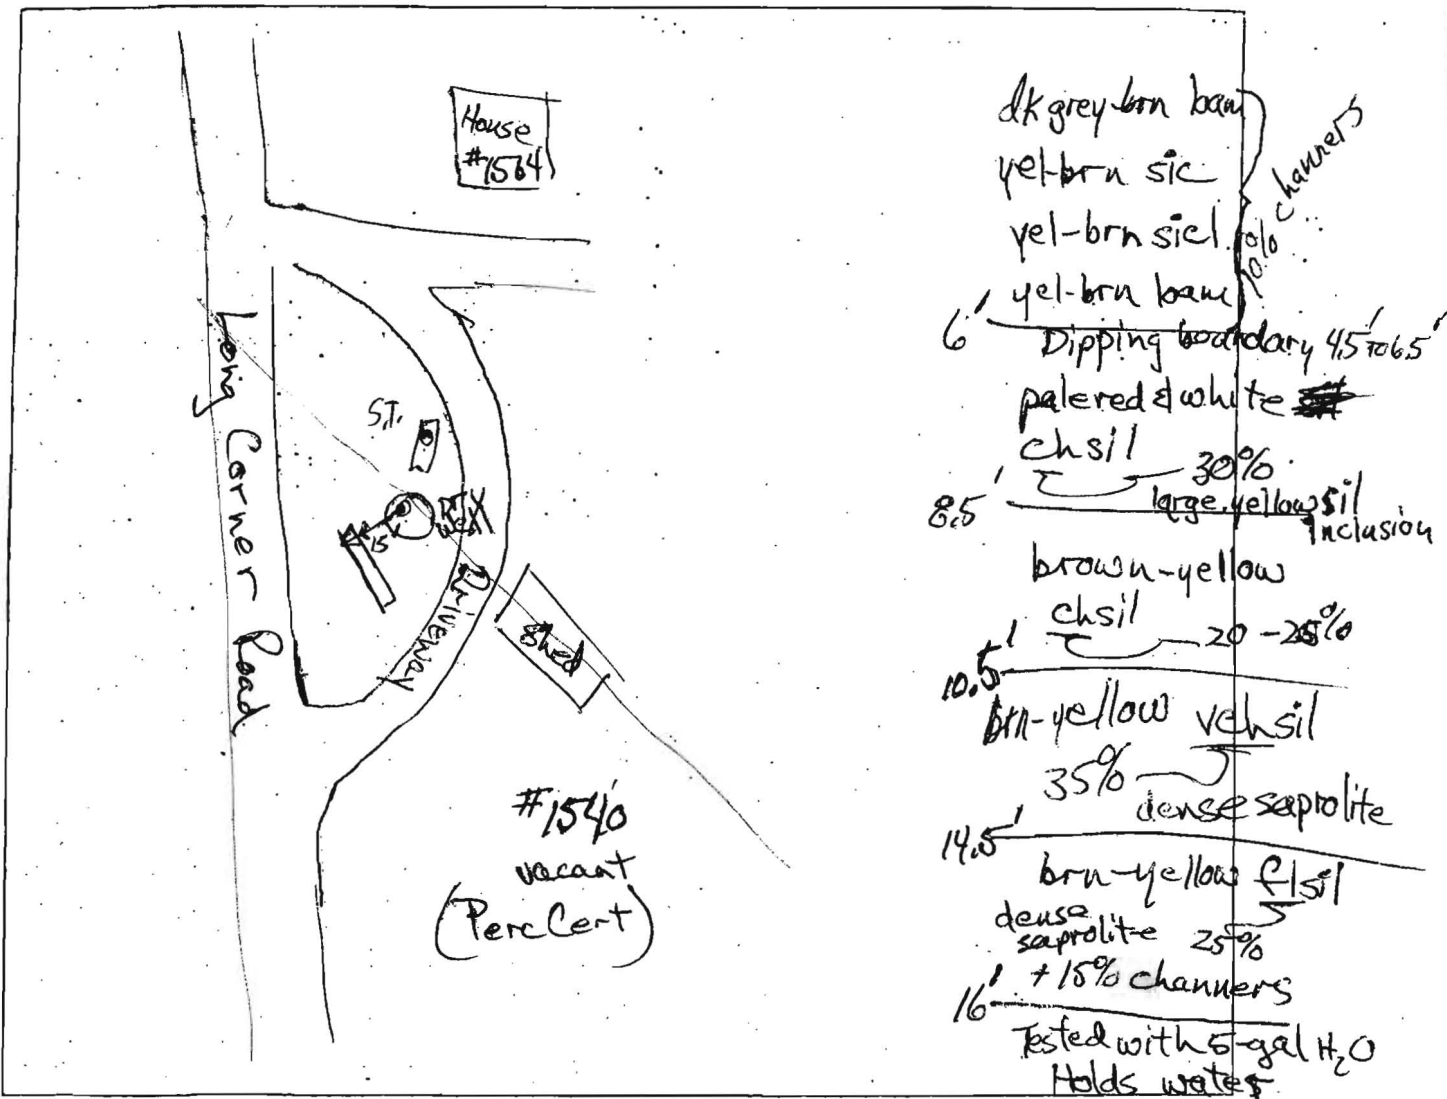 House
#1564
Long Corner Road
S.T.
15'
Driveway
Shed
#1540
vacant
(Perc Cert)
dk grey-brn loam
yel-brn sic
yel-brn sicl
yel-brn loam
10% channers
6'
Dipping boundary 4.5' TO 6.5'
pale red & white
chsil
30%
8.5'
large yellow sil
Inclusion
brown-yellow
chsil
20-25%
10.5'
brn-yellow vchsil
35%
dense saprolite
14.5'
brn-yellow flsil
dense
saprolite 25%
+ 15% channers
16'
Tested with 5-gal H₂O
Holds water